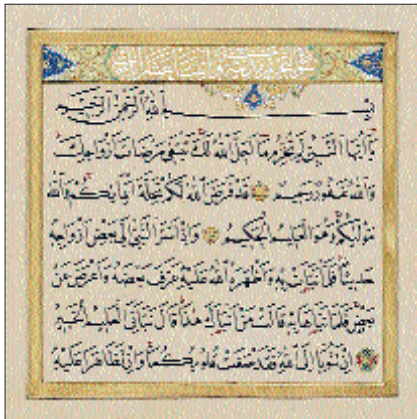 بِسْمِ اللَّهِ الرَّحْمَنِ الرَّحِيمِ
يَا أَيُّهَا النَّبِيُّ لِمَ تُحَرِّمُ مَا أَحَلَّ اللَّهُ لَكَ تَبْتَغِي مَرْضَاتَ أَزْوَاجِكَ
وَاللَّهُ غَفُورٌ رَحِيمٌ قَدْ فَرَضَ اللَّهُ لَكُمْ تَحِلَّةَ أَيْمَانِكُمْ وَاللَّهُ
مَوْلَيكُمْ وَهُوَ الْعَلِيمُ الْحَكِيمُ وَإِذْ أَسَرَّ النَّبِيُّ إِلَى بَعْضِ أَزْوَاجِهِ
حَدِيثًا فَلَمَّا نَبَّأَتْ بِهِ وَأَظْهَرَهُ اللَّهُ عَلَيْهِ عَرَّفَ بَعْضَهُ وَأَعْرَضَ عَنْ
بَعْضٍ فَلَمَّا نَبَّأَهَا بِهِ قَالَتْ مَنْ أَنْبَأَكَ هَذَا قَالَ نَبَّأَنِيَ الْعَلِيمُ الْخَبِيرُ
إِنْ تَتُوبَا إِلَى اللَّهِ فَقَدْ صَغَتْ قُلُوبُكُمَا وَإِنْ تَظَاهَرَا عَلَيْهِ